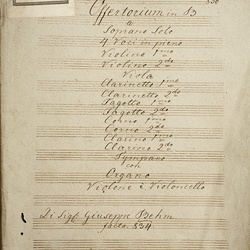 Offertorium in B
a
Soprano Solo
4 Voci in pieno
Violino 1mo
Violino 2do
Viola
Clarinetto 1mo
Clarinetto 2do
Fagotto 1mo
Fagotto 2do
Corno 1mo
Corno 2do
Clarino 1mo
Clarino 2do
Tympano
col
Organo
Violone e Violoncello
Di Sigr Giuseppe Bohm